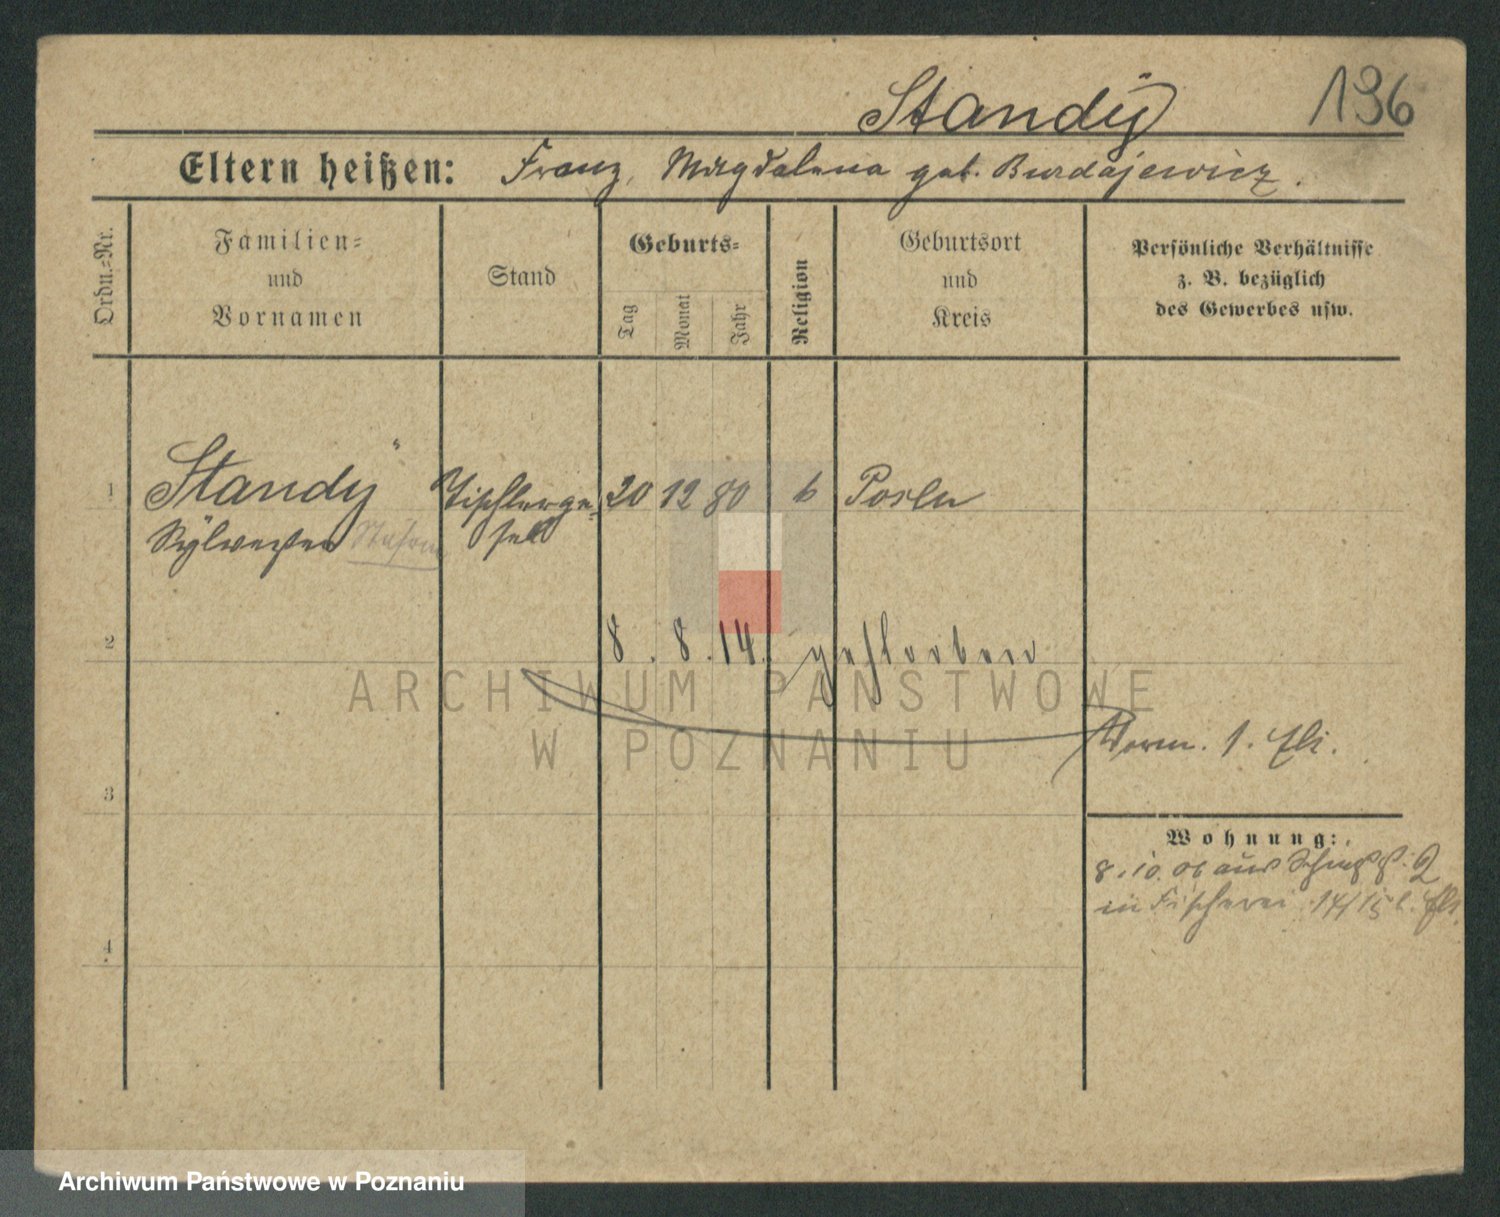 Standÿ 196
Eltern heißen: Franz, Magdalena geb. Burdajewicz.
Ordn.=Nr.
Familien=
und
Vornamen
Stand
Geburts=
Tag
Monat
Jahr
Religion
Geburtsort
und
Kreis
Persönliche Verhältnisse
z. B. bezüglich
des Gewerbes usw.
1 Standÿ Tischlerge= 20 12 80 k Posen
Sylvester sell
2 8. 8. 14. gestorben
ARCHIWUM PAŃSTWOWE
W POZNANIU
Verm. 1.
3
Wohnung:
8.10.06 aus 2
in Fischerei 14/15
4
Archiwum Państwowe w Poznaniu